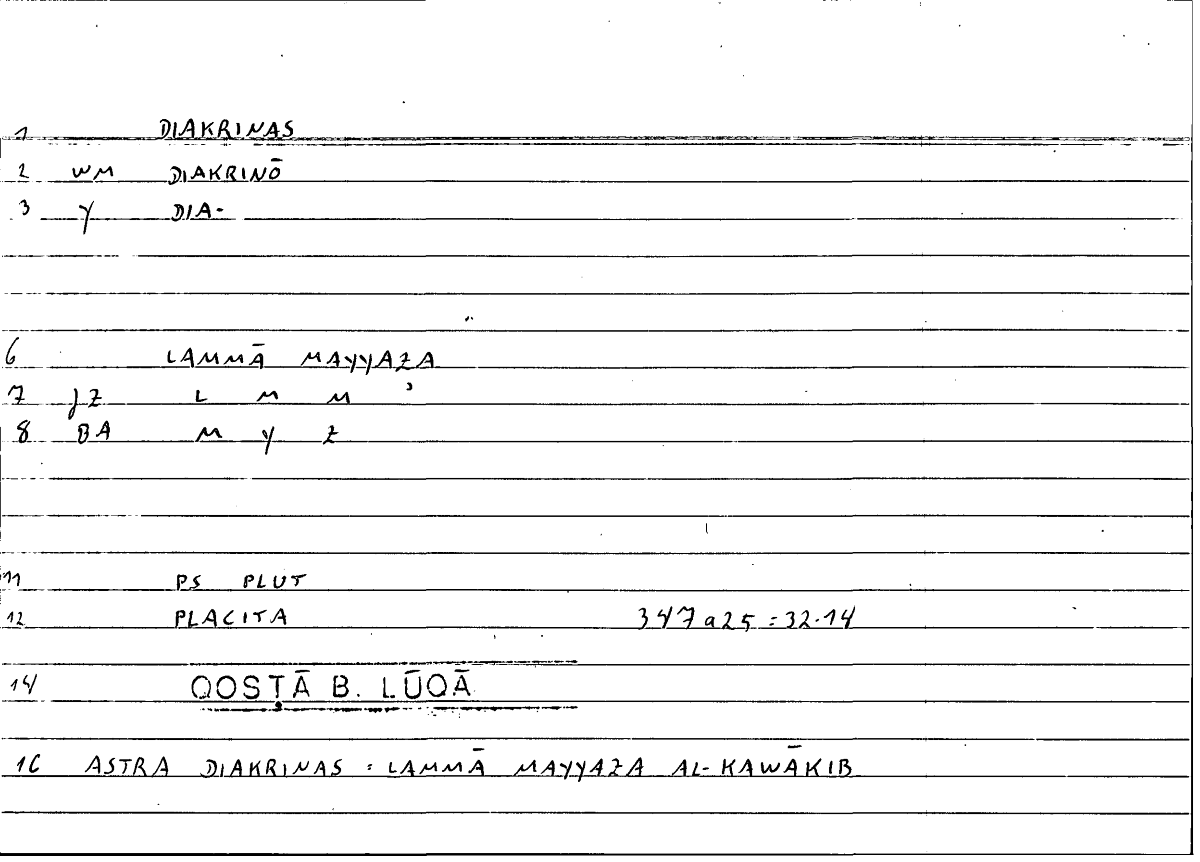 1 DIAKRINAS
2 WM DIAKRINŌ
3 Y DIA-
6 LAMMĀ MAYYAZA
7 JZ L M M ʾ
8 BA M Y Z
11 PS PLUT
12 PLACITA 347a25 = 32.14
14 QOSṬĀ B. LŪQĀ
16 ASTRA DIAKRINAS = LAMMĀ MAYYAZA AL-KAWĀKIB